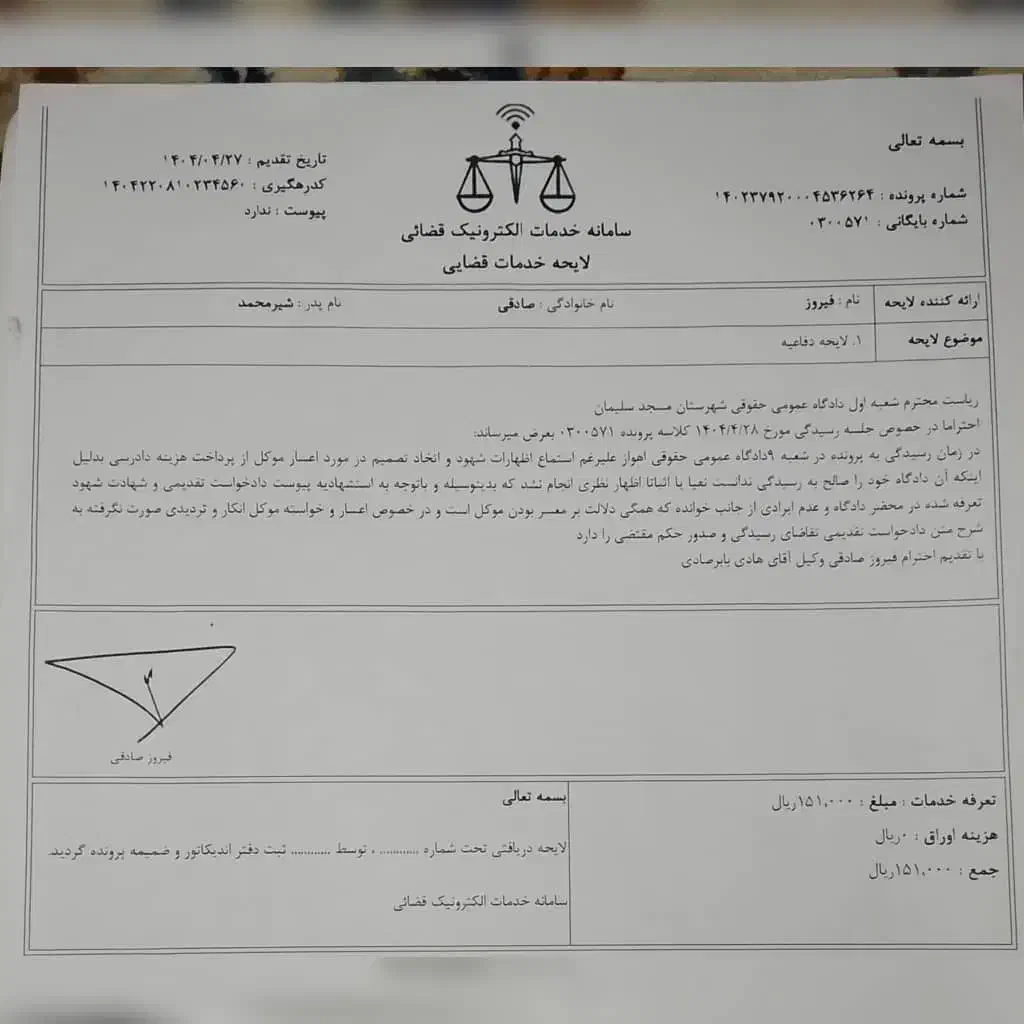 بسمه تعالی
شماره پرونده : ۱۴۰۲۳۷۹۲۰۰۰۴۵۳۶۲۶۴
شماره بایگانی : ۰۳۰۰۵۷۱
سامانه خدمات الکترونیک قضائی
لایحه خدمات قضایی
تاریخ تقدیم : ۱۴۰۴/۰۴/۲۷
کدرهگیری : ۱۴۰۴۲۲۰۸۱۰۲۳۴۵۶۰
پیوست : ندارد
ارائه کننده لایحه نام : فیروز نام خانوادگی : صادقی نام پدر : شیرمحمد
موضوع لایحه ۱. لایحه دفاعیه
ریاست محترم شعبه اول دادگاه عمومی حقوقی شهرستان مسجد سلیمان
احتراما در خصوص جلسه رسیدگی مورخ ۱۴۰۴/۴/۲۸ کلاسه پرونده ۰۳۰۰۵۷۱ بعرض میرساند:
در زمان رسیدگی به پرونده در شعبه ۹دادگاه عمومی حقوقی اهواز علیرغم استماع اظهارات شهود و اتخاذ تصمیم در مورد اعسار موکل از پرداخت هزینه دادرسی بدلیل
اینکه آن دادگاه خود را صالح به رسیدگی ندانست نفیا یا اثباتا اظهار نظری انجام نشد که بدینوسیله و باتوجه به استشهادیه پیوست دادخواست تقدیمی و شهادت شهود
تعرفه شده در محضر دادگاه و عدم ایرادی از جانب خوانده که همگی دلالت بر معسر بودن موکل است و در خصوص اعسار و خواسته موکل انکار و تردیدی صورت نگرفته به
شرح متن دادخواست تقدیمی تقاضای رسیدگی و صدور حکم مقتضی را دارد
با تقدیم احترام فیروز صادقی وکیل آقای هادی بابرصادی
فیروز صادقی
تعرفه خدمات : مبلغ : ۱۵۱,۰۰۰ریال
هزینه اوراق : ۰ریال
جمع : ۱۵۱,۰۰۰ریال
بسمه تعالی
لایحه دریافتی تحت شماره ............ ، توسط ............ ثبت دفتر اندیکاتور و ضمیمه پرونده گردید.
سامانه خدمات الکترونیک قضائی